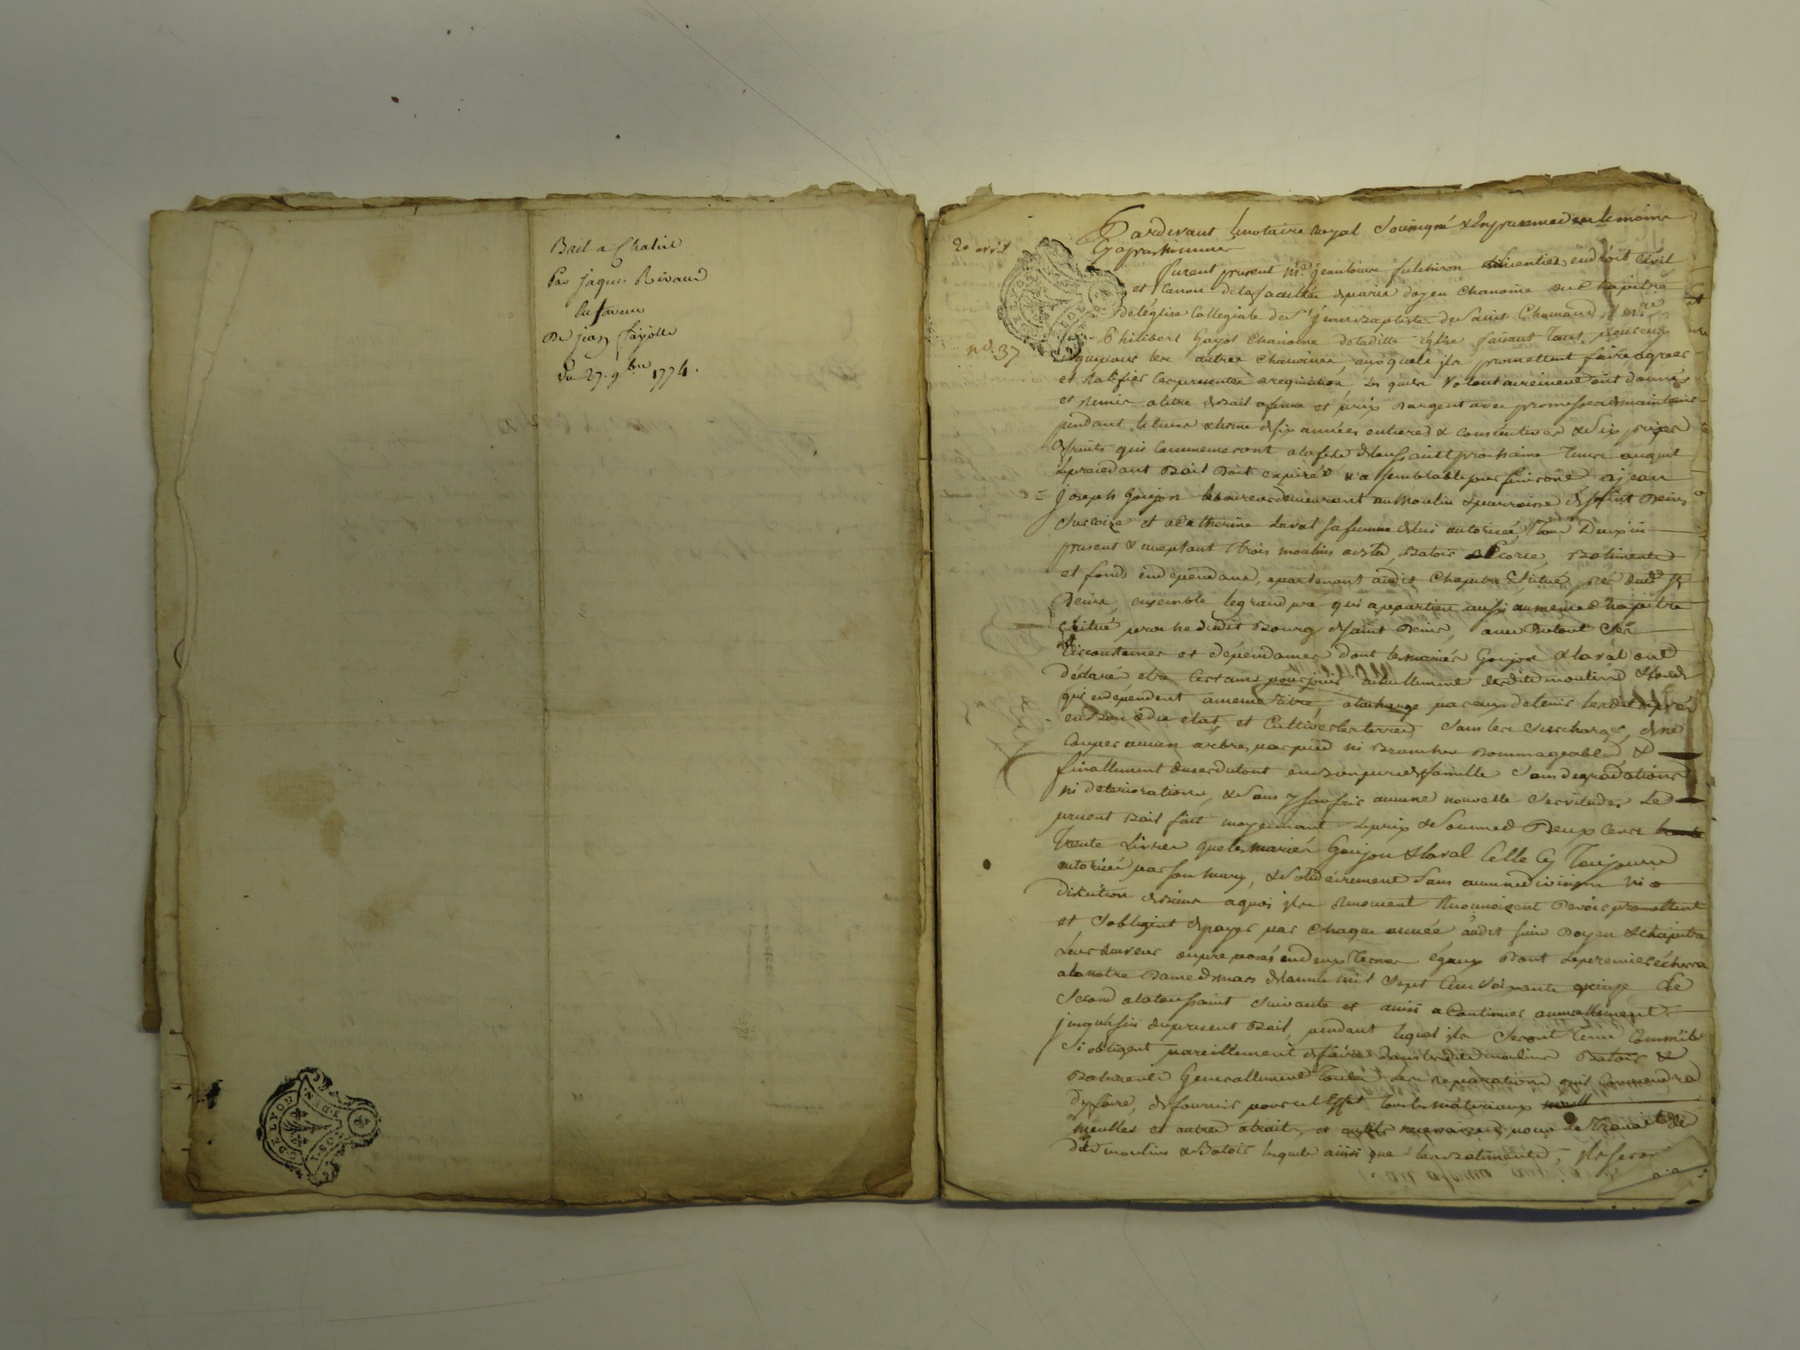 Bail a Chatiel
Par Jaques Rivaud
En faveur
De jean fayolle
du 27. 9bre 1774.
GDE LYON
20 avril
nº. 37
Pardevant le notaire royal Soussigné & En presence des temoins
Cy apres nommés
furent present Mre jean louis fulchiron licentier en droit Civil
et Canon de la faculté de paris doyen Chanoine du Chapitre
de l'église Collegiale de St Jean Baptiste de Saint Chamand, & Mre
Philibert Gayot Chanoine de ladite Eglise faisant tant pour eux
que pour les autres Chanoines, auxquels ils promettent faire agreer
et Ratifier les presentes a requisition, les quels Volontairement ont donnés
et Remis a titre de Bail a ferme et prix d'argent avec promesse de maintenir
pendant le tems & terme de six années entieres & consécutives & Six prises
de fruits qui Commenceront a la fete de toussaint prochaine tems auquel
le precedant Bail Doit expirér & a semblable jour finiront, a jean
Joseph Goujon demeurant au Moulin paroisse de Saint Denis
Sur coize et a Catherine Laval sa femme de lui autorisée, tous Deux icy
present & aceptant trois moulins a Bled, Batoir a Ecorce, Batiments
et fonds en dépendans, apartenant audit Chapitre Situés prés dudt St
Denis, ensemble le grand pré qui appartien aussi au meme Chapitre
Situé proche dudit Bourg de saint Denis, avec du tout Ses
Circonstances et dépendances dont les mariés Goujon & laval ont
déclaré etre Certains pour jouir actuellement desdits moulins & fonds
qui en dépendent a meme titre, a la charge par eux de tenir lesdits prés
en Bon & du état, et Cultiver les terres Sans les Surcharger, de ne
Couper aucun arbre par pied ni Branches Dommageables &
finallement duser du tout en Bon pere de famille Sans degradations
ni deteriorations, & Sans y souffrir aucune nouvelle Servitude. Le
present Bail fait moyennant le prix & Somme de Deux Cent
trente Livres que les mariés Goujon & laval Celle Cy Toujours
autorisée par son mary, & Solidairement Sans aucune division ni
discution de biens a quoi ils Renoncent promettent
et S'obligent de payer par Chaque année audit Sieur Doyen & Chapitre
Leur Receveur ou préposés en deux termes égaux dont le premier échera
a la notre Dame de mars de l'année mil Sept Cent Soixante quinze Le
Second a la toussaint Suivante et ainsi a Continuer annuellement
jusqu'a fin du present Bail, pendant lequel ils Seront tenus Comme ils
S'obligent pareillement de faire dans lesdits moulins Batoir &
Batiments Generallement toutes les reparations qu'il Conviendra
d'y faire, de fournir pour cet Effet tous les matériaux
meulles et autres atraits, et outils necessaires pour le travail des
dits moulins & Batoir lequels ainsi que les Batiments, ils Seron